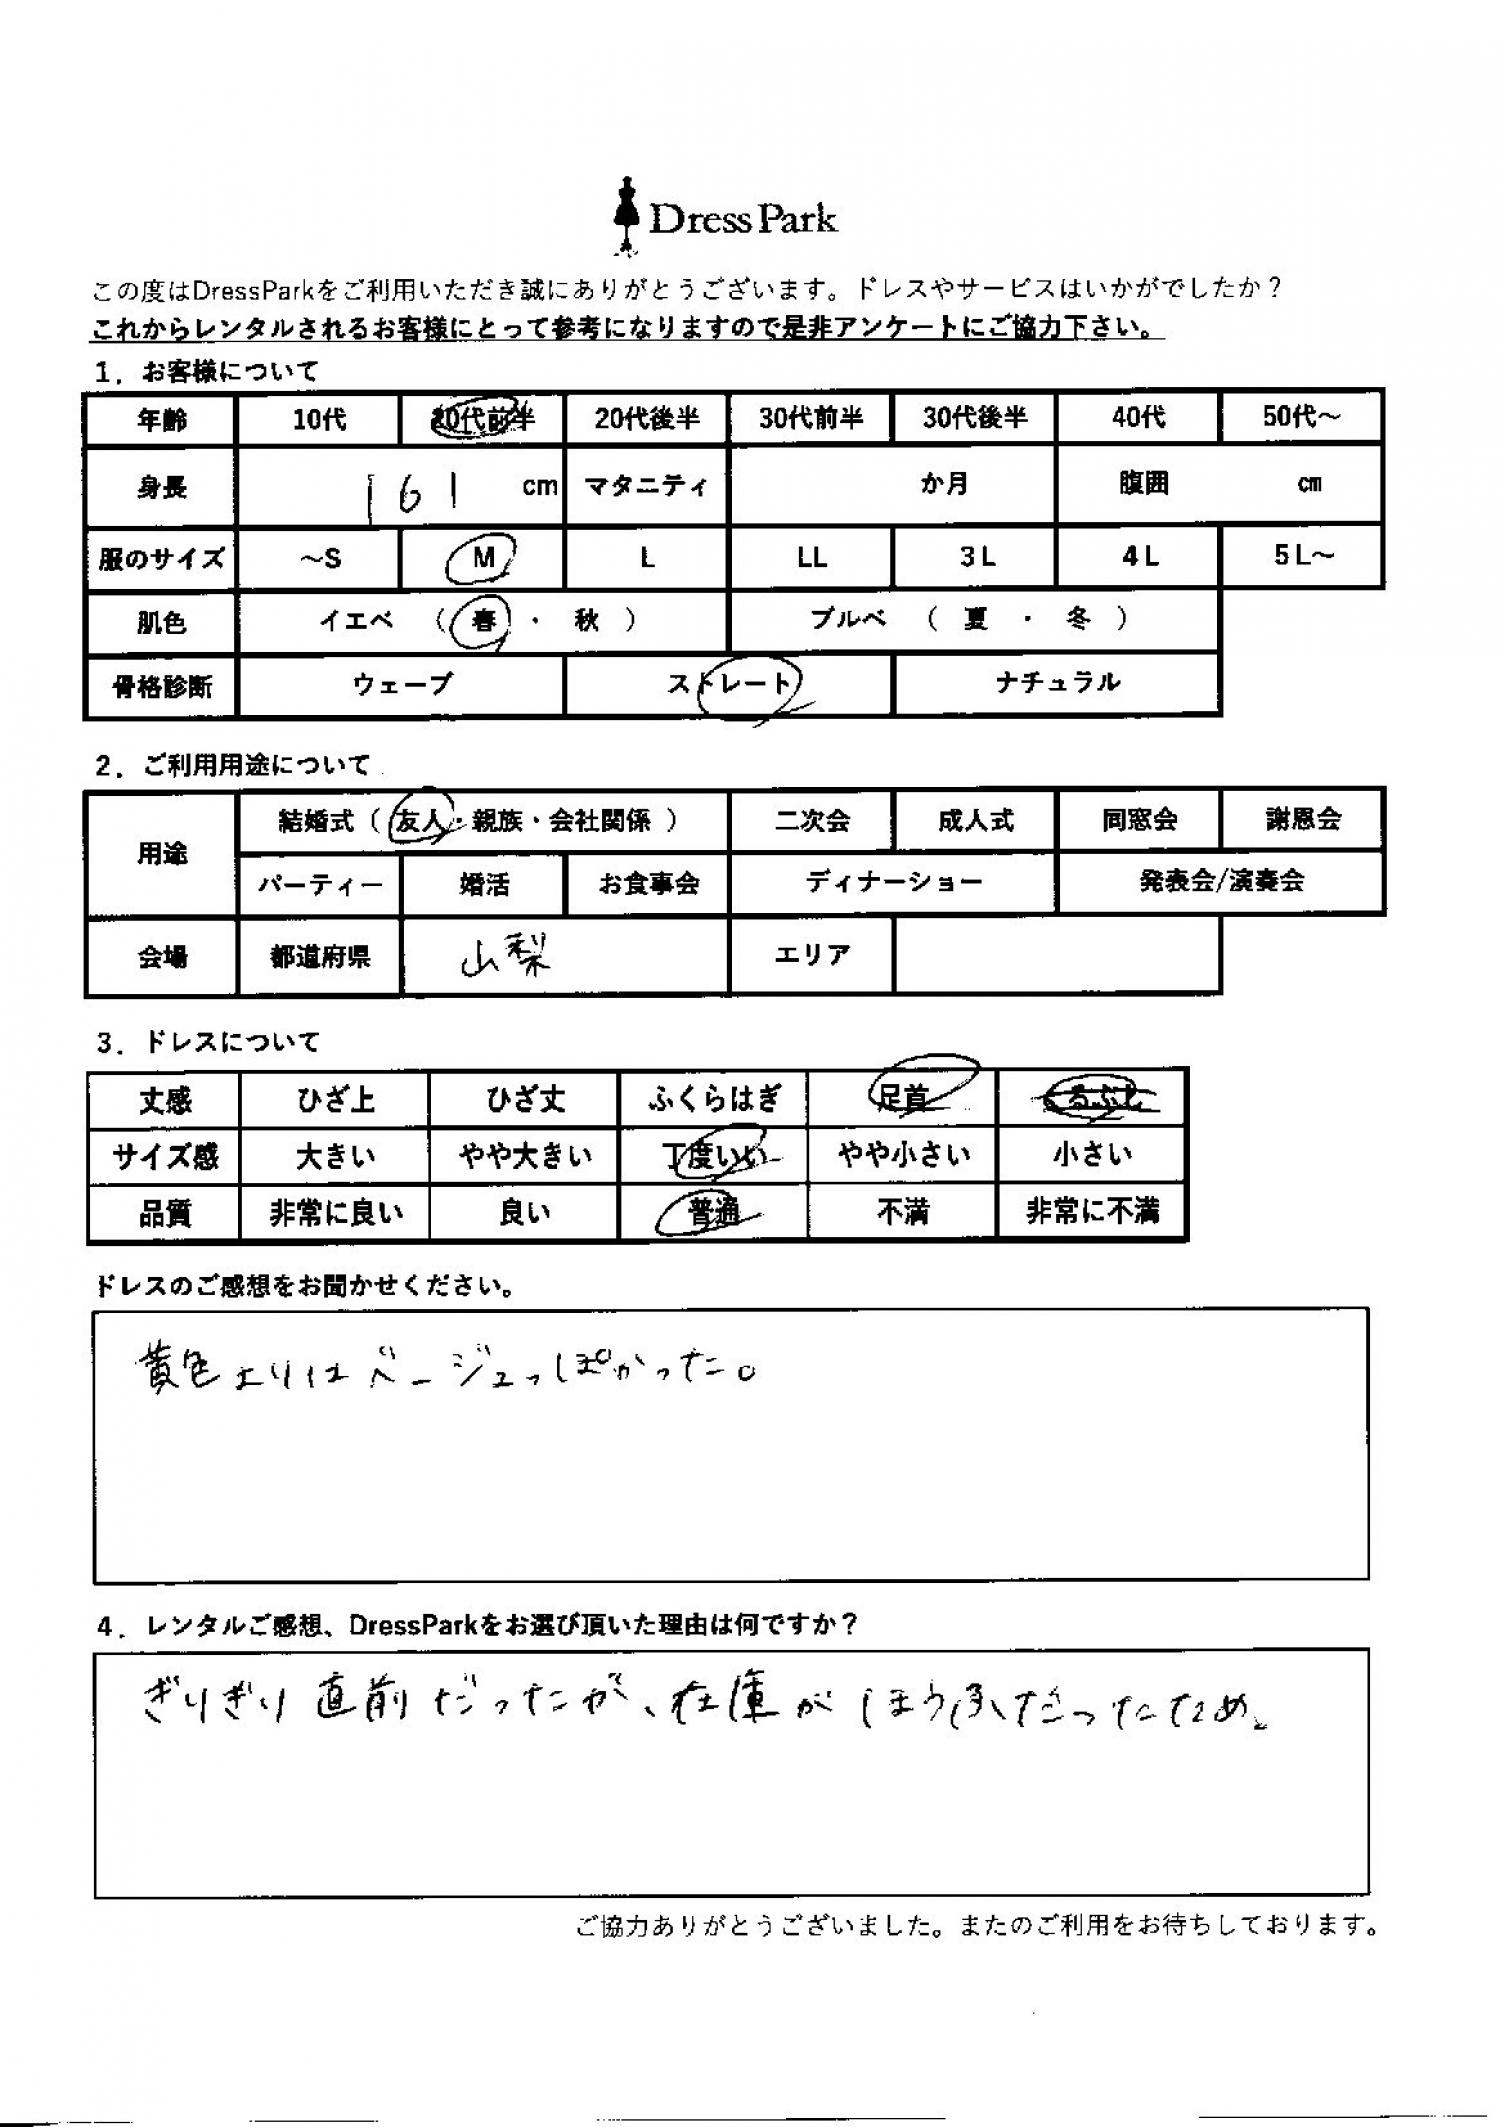 Dress Park
この度はDressParkをご利用いただき誠にありがとうございます。ドレスやサービスはいかがでしたか？
これからレンタルされるお客様にとって参考になりますので是非アンケートにご協力下さい。
1．お客様について
年齢 10代 20代前半 20代後半 30代前半 30代後半 40代 50代～
身長 161 cm マタニティ か月 腹囲 cm
服のサイズ ～S M L LL 3L 4L 5L～
肌色 イエベ （ 春 ・ 秋 ） ブルベ （ 夏 ・ 冬 ）
骨格診断 ウェーブ ストレート ナチュラル
2．ご利用用途について
用途 結婚式（ 友人・親族・会社関係 ） 二次会 成人式 同窓会 謝恩会
パーティー 婚活 お食事会 ディナーショー 発表会/演奏会
会場 都道府県 山梨 エリア
3．ドレスについて
丈感 ひざ上 ひざ丈 ふくらはぎ 足首 くるぶし
サイズ感 大きい やや大きい 丁度いい やや小さい 小さい
品質 非常に良い 良い 普通 不満 非常に不満
ドレスのご感想をお聞かせください。
黄色よりはベージュっぽかった。
4．レンタルご感想、DressParkをお選び頂いた理由は何ですか？
ぎりぎり直前だったが、在庫がほうふだったため。
ご協力ありがとうございました。またのご利用をお待ちしております。